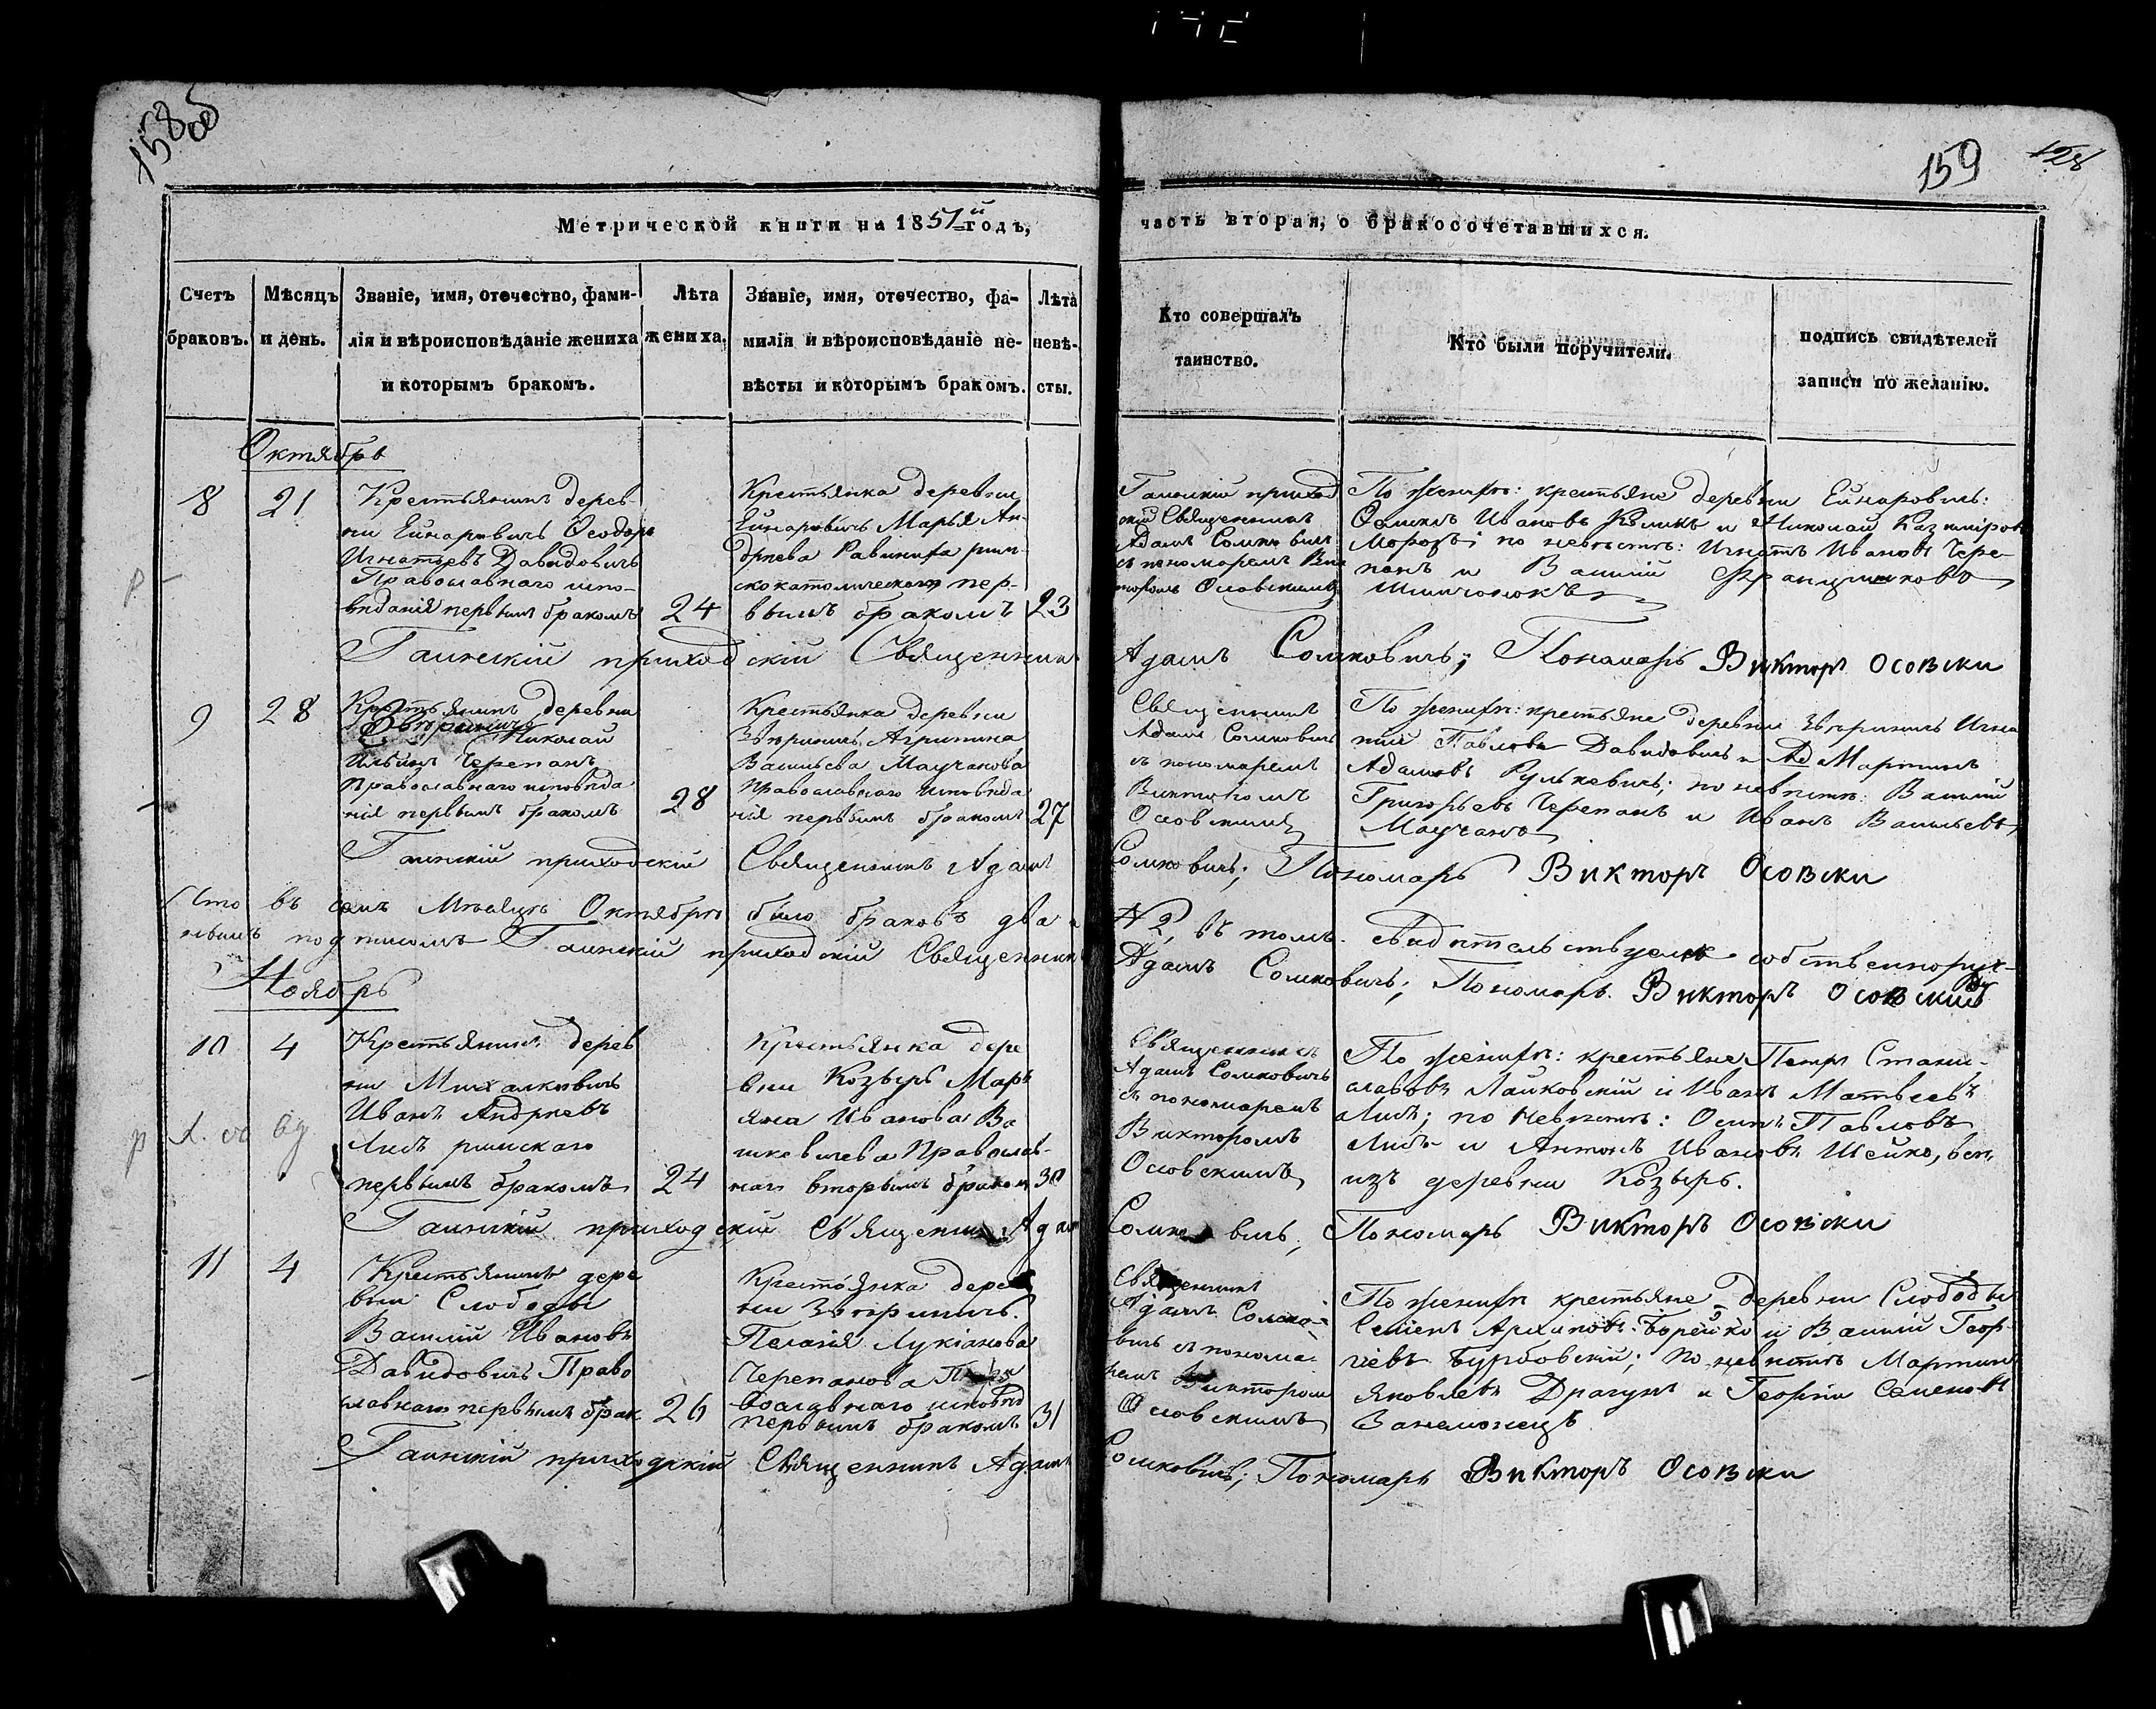 158 об
159
128
Метрической книги на 1851й годъ,
часть вторая, о бракосочетавшихся.
Счетъ браковъ.
Мѣсяцъ и день.
Званіе, имя, отечество, фами-
лія и вѣроисповѣданіе жениха
и которымъ бракомъ.
Лѣта
жениха.
Званіе, имя, отечество, фа-
милія и вѣроисповѣданіе не-
вѣсты и которымъ бракомъ.
Лѣта
невѣ-
сты.
Кто совершалъ
таинство.
Кто были поручители.
подпись свидѣтелей
записи по желанію.
Октябрь
8
21
Крестьянинъ дерев-
ни Ейнаровичь Ѳеодоръ
Игнатьевъ Давидовичь
Православнаго испо-
вѣданія первымъ бракомъ
24
Крестьянка деревни
Ейнаровичь Марья Ан-
дреева рим-
скокатолическаго пер-
вымъ бракомъ
23
Гаинскій приход
скій Священникъ
Адамъ Сомковичь
съ пономаремъ Вик
торомъ Осовскимъ
По женихѣ: крестьяне деревни Ейнаровичь:
Ивановъ и Николай Казиміровъ
Морозъ; по невѣстѣ: Игнатъ Ивановъ Чере-
панъ и Василій Францишковъ
Гаинскій приходскій Священникъ
Адамъ Сомковичь; Пономарь Викторъ Осовски
9
28
Крестьянинъ деревни
Звѣриничь Николай
Ильинъ Черепанъ
Православнаго исповѣда
нія первымъ бракомъ
28
Крестьянка деревни
Звѣриничь Агрипина
Васильева Маучанова
Православнаго исповѣда
нія первымъ бракомъ
27
Священникъ
Адамъ Сомковичь
съ пономаремъ
Викторомъ
Осовскимъ
По женихѣ: крестьяне деревни Звѣриничь Игна
тій Павловъ Давидовичь и Ад Мартинъ
Адамовъ Рулькевичь; по невѣстѣ: Василій
Григорьевъ Черепанъ и Иванъ Васильевъ
Маучанъ
Гаинскій приходскій Священникъ Адамъ
Сомковичь; Пономарь Викторъ Осовски
Что въ семъ Мѣсяцѣ Октябрѣ было браковъ два
№ 2, въ томъ свидѣтельствуемъ собственнорус-
нымъ подписомъ Гаинскій приходскій Священникъ
Адамъ Сомковичь; Пономарь Викторъ Осовскій
Ноябрь
10
4
Крестьянинъ дерев
ни Михалковичь
Иванъ Андреевъ
Лисъ римскаго
первымъ бракомъ
24
Крестьянка дере
вни Козырь Марь
яна Иванова Ва
шкевичева Православ-
наго вторымъ бракомъ
30
Священникъ
Адамъ Сомковичь
съ пономаремъ
Викторомъ
Осовскимъ
По женихѣ: крестьяне Петръ Стани-
славовъ Лайковскій и Иванъ Матвѣевъ
Лисъ; по невѣстѣ: Осипъ Павловъ
Лисъ и Антонъ Ивановъ Шейко, вси
изъ деревни Козырь.
Гаинскій приходскій Священникъ Адамъ
Сомковичь; Пономарь Викторъ Осовски
11
4
Крестьянинъ дере
вни Слободы
Василій Ивановъ
Давидовичь Право
славнаго первымъ брак
26
Крестьянка дерев
ни Звѣриничь
Пелагія Лукіанова
Черепанова Пра
вославнаго исповѣд
первымъ бракомъ
31
Священникъ
Адамъ Сомко-
вичь съ понома-
ремъ Викторомъ
Осовскимъ
По женихѣ крестьяне деревни Слободы
Семенъ Архиповъ Борейко и Василій Геор-
гіевъ Бурбовскій; по невѣстѣ Мартинъ
Яковлевъ Драгунъ и Георгій Семеновъ
Ванемонецъ
Гаинскій приходскій Священникъ Адамъ
Сомковичь; Пономарь Викторъ Осовски